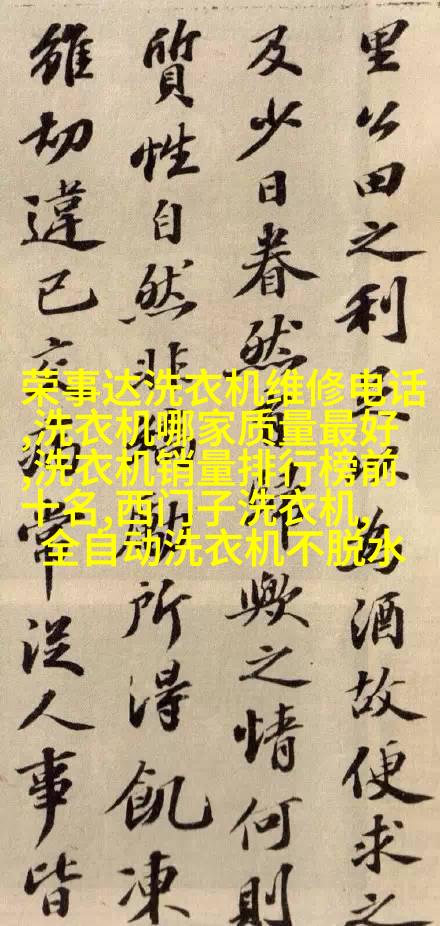 里公田之利為酒故便求之
及少日眷然有歸歟之情何則
質性自然非矯勵所得飢凍
雖切違己交病嘗從人事皆
荣事达洗衣机维修电话
,洗衣机哪家质量最好
,洗衣机销量排行榜前
十名,西门子洗衣机,
全自动洗衣机不脱水